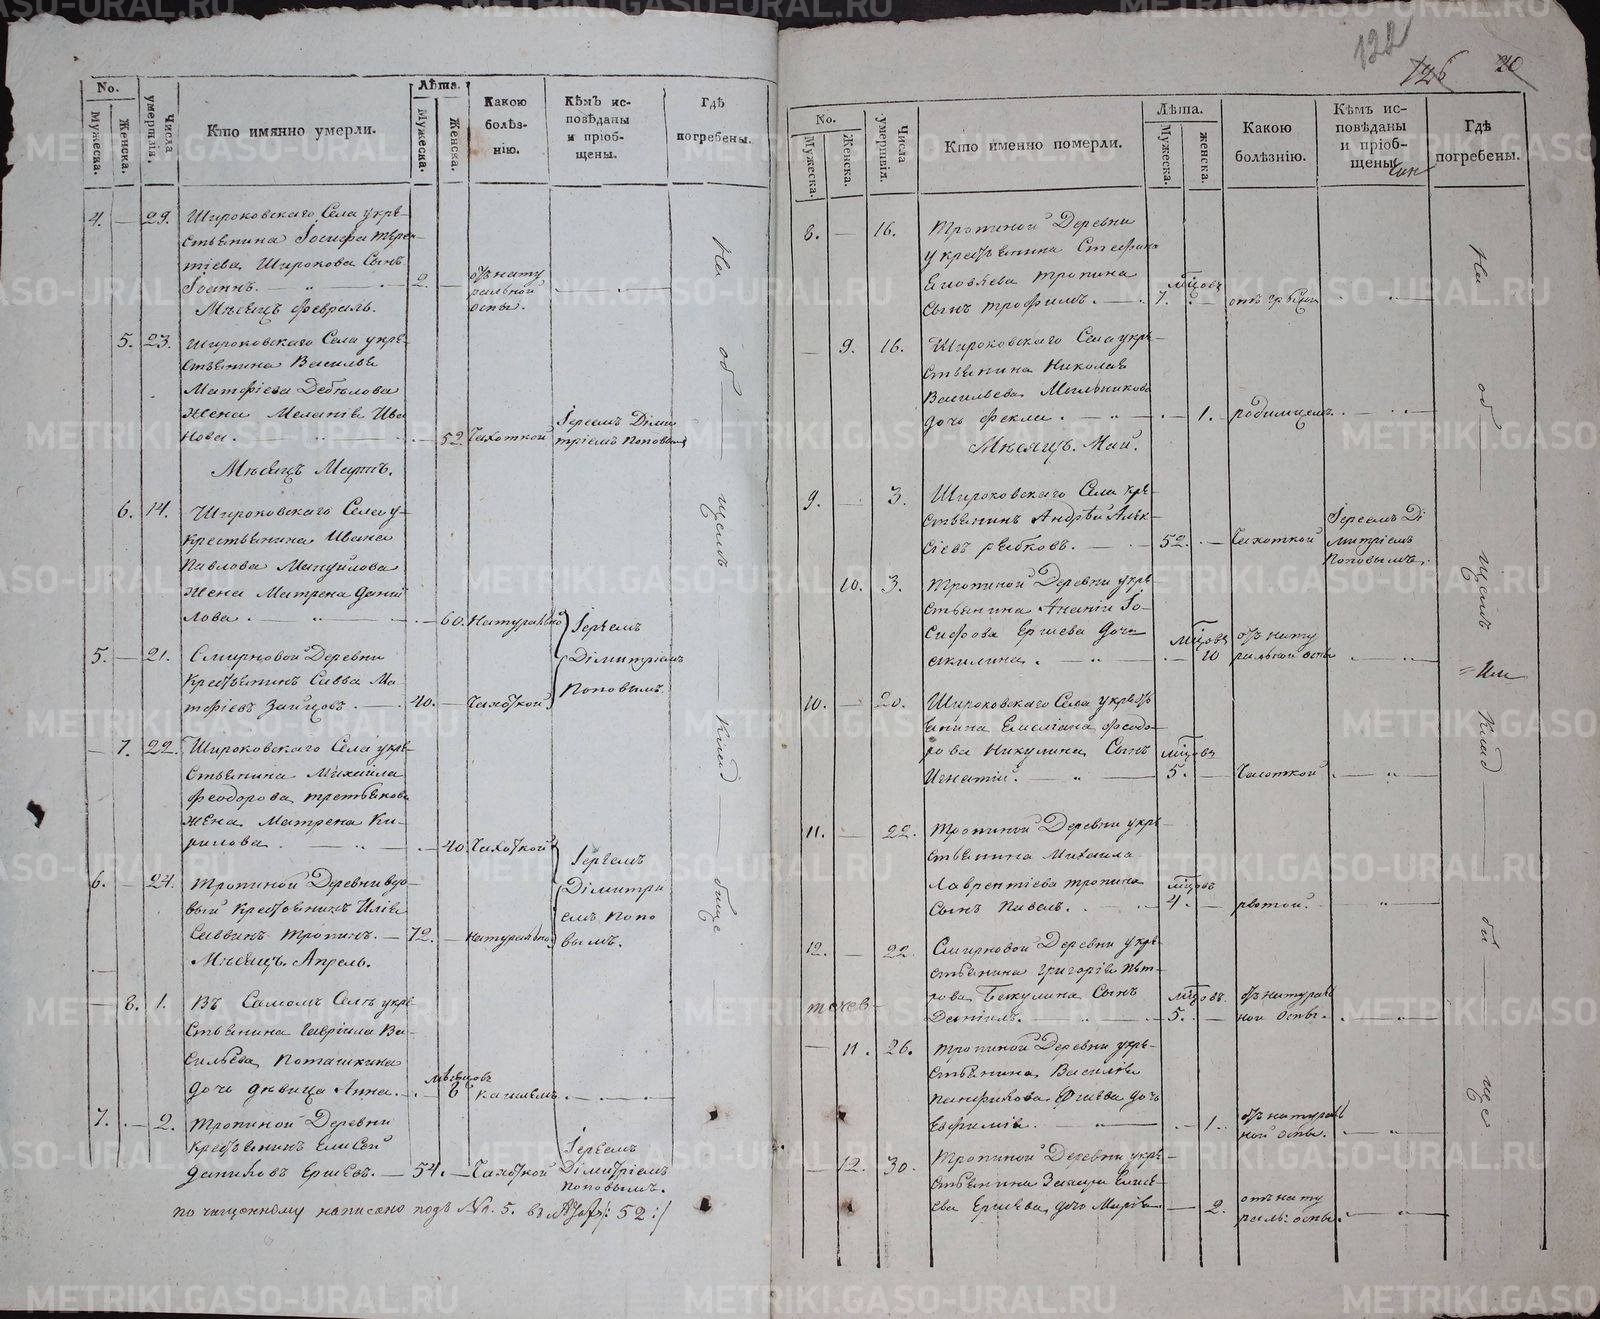 122
126 20
No.
Мужеска.
Женска.
Числа умершiя.
Кто имянно умерли.
Лѣта.
Мужеска.
Женска.
Какою болѣз-
нiю.
Кѣмъ ис-
повѣданы
и прiоб-
щены.
Гдѣ
погребены.
4. — 29. Широковскаго Села укре-
стьянина Iосифа Терен-
тiева Широкова Сынъ
Iоаннъ. — 2 — отъ нату
ральной
оспы.
Мѣсяцъ Февраль.
5. 23. Широковскаго Села укре-
стьянина Василья
Матфiева
жена Меланiя Ива
нова. — 52. Чахоткой Iереемъ Дими
трiемъ Поповымъ
Мѣсяцъ Мартъ.
6. 14. Широковскаго Села у-
крестьянина Ивана
Павлова Мануйлова
жена Матрена Данiй
лова. — 60. Натурально Iереемъ
Дiмитрiемъ
Поповымъ.
5. — 21. Смирновой Деревни
Крестьянинъ Савва Ма-
тфiевъ Зайцовъ. — 40. — Чахоткой
— 7. 22. Широковскаго Села укре-
стьянина Михайла
Феодорова Третьякова
жена Матрена Ки-
рилова — 40. Чахоткой Iереемъ
Дiмитрi
емъ Попо
вымъ.
6. — 24. Тропиной Деревни вдо-
вый крестьянинъ Илiя
Саввинъ Тропинъ. — 72. — Натурально
Мѣсяцъ Апрель.
— 8. 1. Въ Самомъ Селѣ укре-
стьянина Гаврiила Ва-
сильева Поташкина
дочь дѣвица Анна. мѣсяцовъ
8 кашлемъ
7. — 2. Тропиной Деревни
крестьянинъ Елисей
Даниловъ Ершевъ. — 54. — Чахоткой Iереемъ
Дiмитрiемъ
Поповымъ.
На об — щемъ — клад — бище
по чищенному написано подъ №. 5. въ /: 52 :/
No.
Мужеска.
Женска.
Числа умершiя.
Кто именно померли.
Лѣта.
Мужеска.
женска.
Какою
болѣзнiю.
Кѣмъ ис-
повѣданы
и прiоб-
щены.
Гдѣ
погребены.
8. — 16. Тропиной Деревни
укрестьянина Стефана
Яковлева Тропина
сынъ Трофимъ. — мѣцовъ
7. отъ грыжи
— 9. 16. Широковскаго Села укре-
стьянина Николая
Васильева Мыльникова
дочь Фекла. — 1. родимцемъ.
Мѣсяцъ. Май.
9. — 3. Широковскаго Села кре-
стьянинъ Андрей Алек-
сiевъ Рыбковъ. — 52. — Чахоткой Iереемъ Дi
митрiемъ
Поповымъ.
10. 3. Тропиной Деревни укре
стьянина Ананiи Iо-
сифова Ершева дочь
Акилина. мѣцовъ
10 отъ нату
ральной оспы
10. — 20. Широковскаго Села укресть
янина Емелiана Феодо-
рова Никулина Сынъ
Игнатiй. мѣцовъ
5. — Чахоткой
11. — 22. Тропиной Деревни укре
стьянина Михаила
Лаврентiева Тропина
сынъ Павелъ. мѣцовъ
4. — рвотой.
12. — 22. Смирновой Деревни укре-
стьянина Григорiя Пет-
рова Бакулина Сынъ
мѣцовъ
5. — отъ натураль
ной оспы.
— 11. 26. Тропиной Деревни укре-
стьянина Василiя
Панфилова Ершева дочь
Евфимiя — 1. отъ натураль
ной оспы.
— 12. 30. Тропиной Деревни укре-
стьянина Захара Елисе-
ева Ершева дочь Марiя — 2. отъ нату
раль: оспы.
На — об — щемъ — клад — би — ще
METRIKI.GASO-URAL.RU